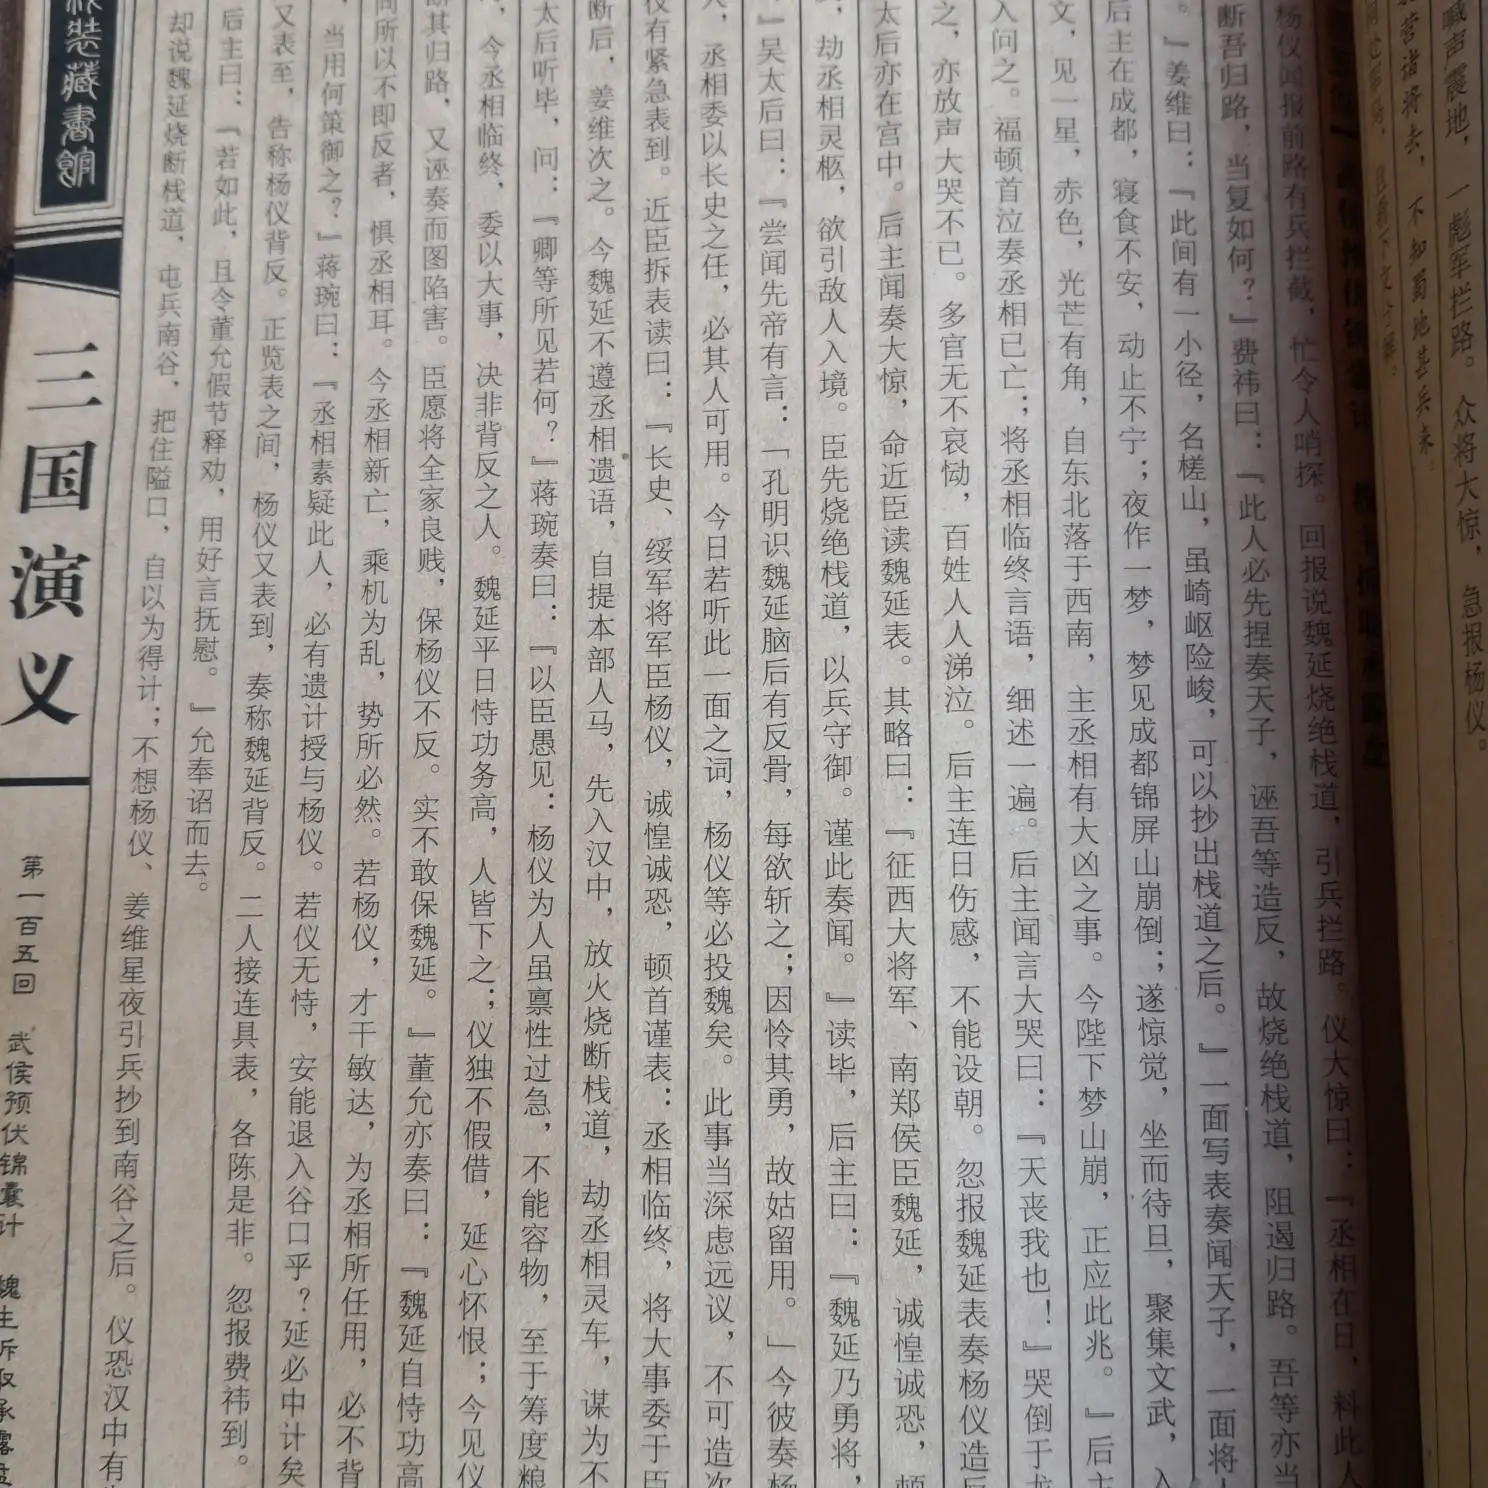 喊声震地，一彪军拦路。众将大惊，急报杨仪。
营诸将去，不知蜀地甚兵来
杨仪闻报前路有兵拦截，忙令人哨探。回报说魏延烧绝栈道，引兵拦路。仪大惊曰：『丞相在日，料此人
断吾归路，当复如何？』费祎曰：『此人必先捏奏天子，诬吾等造反，故烧绝栈道，阻遏归路。吾等亦当
。』姜维曰：『此间有一小径，名槎山，虽崎岖险峻，可以抄出栈道之后。』一面写表奏闻天子，一面将
后主在成都，寝食不安，动止不宁；夜作一梦，梦见成都锦屏山崩倒；遂惊觉，坐而待旦，聚集文武，入
文，见一星，赤色，光芒有角，自东北落于西南，主丞相有大凶之事。今陛下梦山崩，正应此兆。』后主
入问之。福顿首泣奏丞相已亡；将丞相临终言语，细述一遍。后主闻言大哭曰：『天丧我也！』哭倒于龙
之，亦放声大哭不已。多官无不哀恸，百姓人人涕泣。后主连日伤感，不能设朝。忽报魏延表奏杨仪造反
太后亦在宫中。后主闻奏大惊，命近臣读魏延表。其略曰：『征西大将军、南郑侯臣魏延，诚惶诚恐，顿
，劫丞相灵柩，欲引敌人入境。臣先烧绝栈道，以兵守御。谨此奏闻。』读毕，后主曰：『魏延乃勇将，
』吴太后曰：『尝闻先帝有言：「孔明识魏延脑后有反骨，每欲斩之；因怜其勇，故姑留用。」今彼奏杨
人，丞相委以长史之任，必其人可用。今日若听此一面之词，杨仪等必投魏矣。此事当深虑远议，不可造次
仪有紧急表到。近臣拆表读曰：『长史、绥军将军臣杨仪，诚惶诚恐，顿首谨表：丞相临终，将大事委于臣
断后，姜维次之。今魏延不遵丞相遗语，自提本部人马，先入汉中，放火烧断栈道，劫丞相灵车，谋为不
太后听毕，问：『卿等所见若何？』蒋琬奏曰：『以臣愚见：杨仪为人虽禀性过急，不能容物，至于筹度粮
，今丞相临终，委以大事，决非背反之人。魏延平日恃功务高，人皆下之；仪独不假借，延心怀恨；今见仪
断其归路，又诬奏而图陷害。臣愿将全家良贱，保杨仪不反。实不敢保魏延。』董允亦奏曰：『魏延自恃功高
间所以不即反者，惧丞相耳。今丞相新亡，乘机为乱，势所必然。若杨仪，才干敏达，为丞相所任用，必不背
，当用何策御之？』蒋琬曰：『丞相素疑此人，必有遗计授与杨仪。若仪无恃，安能退入谷口乎？延必中计矣
又表至，告称杨仪背反。正览表之间，杨仪又表到，奏称魏延背反。二人接连具表，各陈是非。忽报费祎到。
后主曰：『若如此，且令董允假节释劝，用好言抚慰。』允奉诏而去。
却说魏延烧断栈道，屯兵南谷，把住隘口，自以为得计；不想杨仪、姜维星夜引兵抄到南谷之后。仪恐汉中有
装藏书馆
三国演义
第一百五回 武侯预伏锦囊计 魏主拆取承露盘